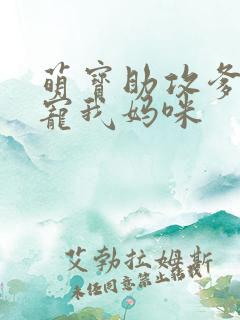 萌寶助攻爹
寵我媽咪
艾勃拉姆斯
未经同意禁止转载